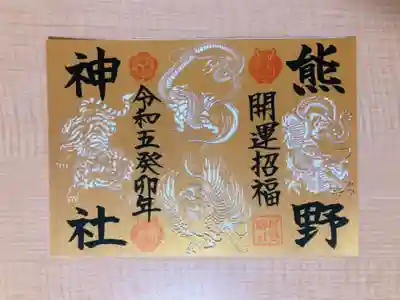 熊野
開運招福
令和五癸卯年
神社